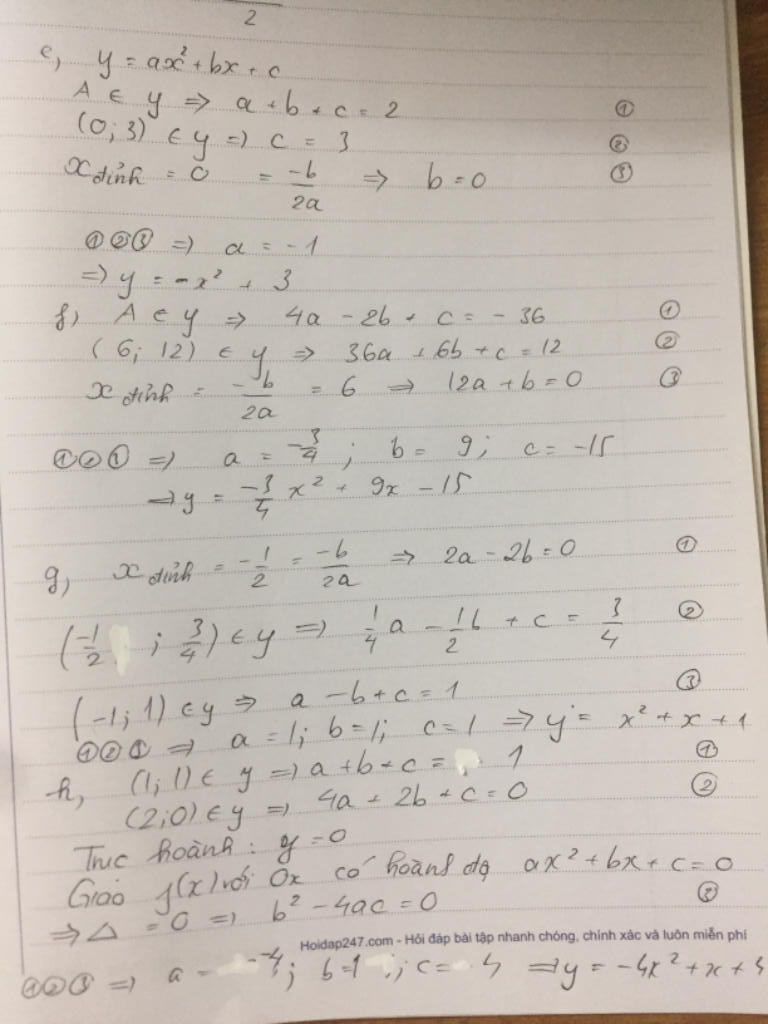 2
e, y = ax² + bx + c
A ∈ y => a + b + c = 2 ①
(0; 3) ∈ y => c = 3 ②
x đỉnh = 0 = -b/2a => b = 0 ③
①②③ => a = -1
=> y = -x² + 3
f, A ∈ y => 4a - 2b + c = -36 ①
(6; 12) ∈ y => 36a + 6b + c = 12 ②
x đỉnh = -b/2a = 6 => 12a + b = 0 ③
①②③ => a = -3/4; b = 9; c = -15
=> y = -3/4 x² + 9x - 15
g, x đỉnh = -1/2 = -b/2a => 2a - 2b = 0 ①
(-1/2; 3/4) ∈ y => 1/4 a - 1/2 b + c = 3/4 ②
(-1; 1) ∈ y => a - b + c = 1 ③
①②③ => a = 1; b = 1; c = 1 => y = x² + x + 1
h, (1; 1) ∈ y => a + b + c = 1 ①
(2; 0) ∈ y => 4a + 2b + c = 0 ②
Trục hoành: y = 0
Giao f(x) với Ox có hoành độ ax² + bx + c = 0
=> Δ = 0 => b² - 4ac = 0 ③
Hoidap247.com - Hỏi đáp bài tập nhanh chóng, chính xác và luôn miễn phí
①②③ => a = -4; b = 1; c = 4 => y = -4x² + x +